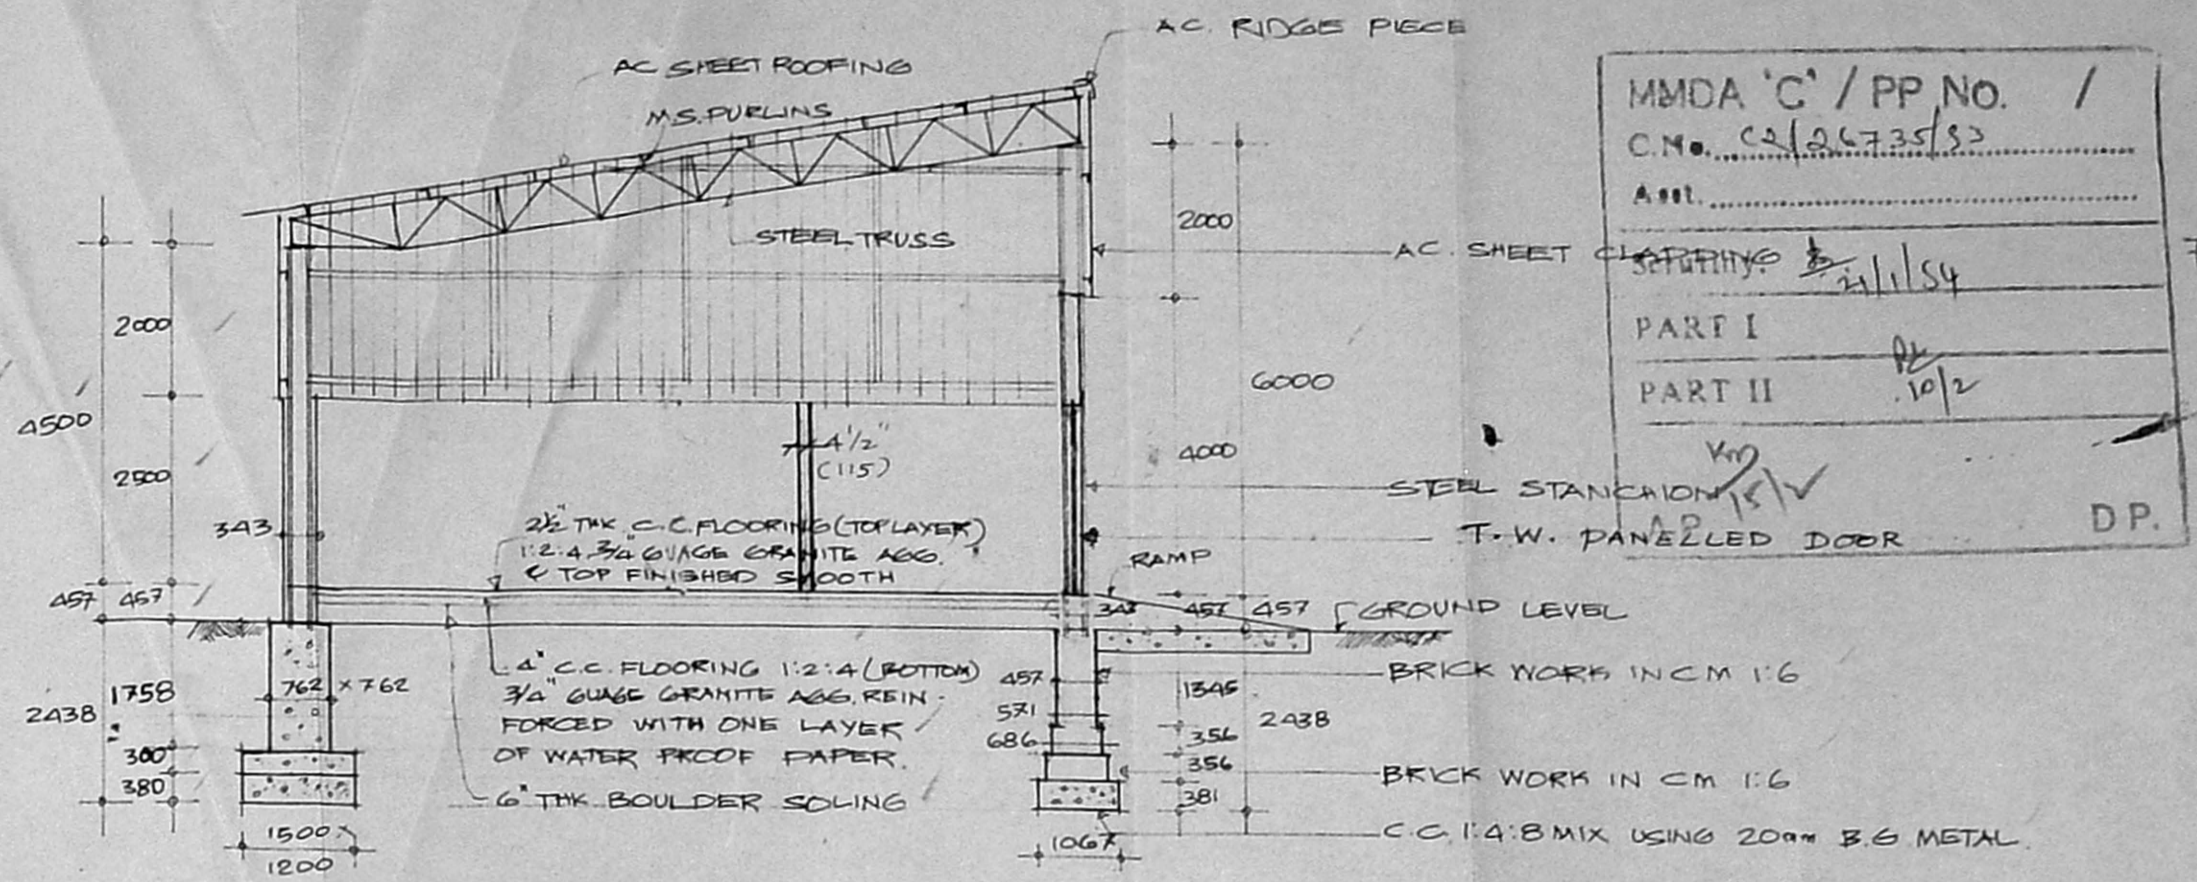 AC. RIDGE PIECE
AC SHEET ROOFING
M.S. PURLINS
STEEL TRUSS
2000
AC. SHEET CLADDING
2000
4500
2500
6000
4000
4 1/2"
(115)
STEEL STANCHION
T.W. PANELLED DOOR
343
2 1/2" THK C.C. FLOORING (TOP LAYER)
1:2:4 3/4" GUAGE GRANITE AGG.
& TOP FINISHED SMOOTH
RAMP
457 457
343 457 457
GROUND LEVEL
4" C.C. FLOORING 1:2:4 (BOTTOM)
3/4" GUAGE GRANITE AGG. REIN-
FORCED WITH ONE LAYER
OF WATER PROOF PAPER.
6" THK BOULDER SOLING
762 x 762
1758
2438
300
380
1500 x
1200
457
571
686
1345
2438
356
356
381
1067
BRICK WORK IN CM 1:6
BRICK WORK IN CM 1:6
C.C. 1:4:8 MIX USING 20mm B.G METAL.
MMDA 'C' / PP NO. /
C.No. C2/26735/83
Asst.
Scrutiny:
PART I
PART II
10/2
D P.